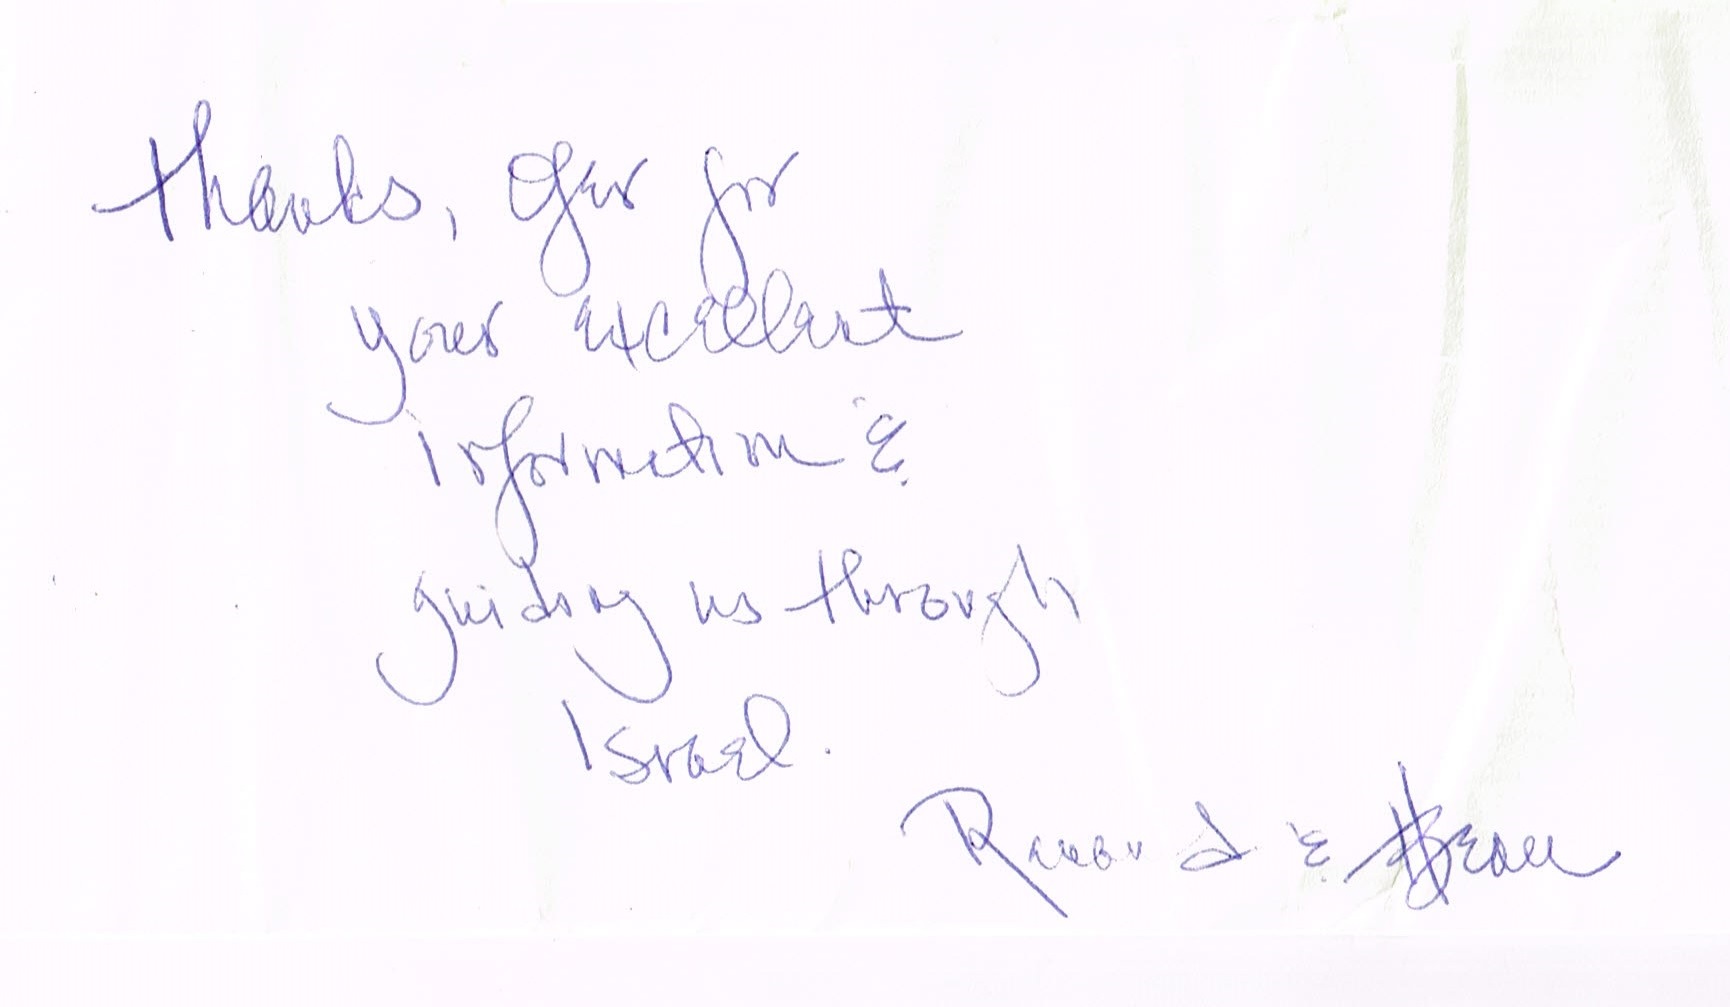 thanks, Ofer for
your excellent
information &
guiding us through
Israel.
&